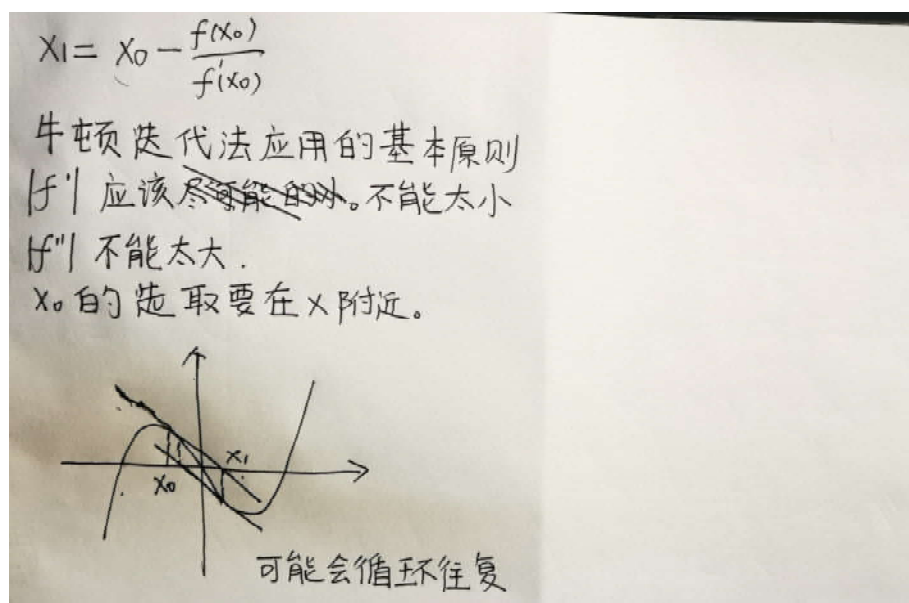 x₁ = x₀ - f(x₀)/f'(x₀)
牛顿迭代法应用的基本原则
|f'| 应该尽可能的小。不能太小
|f''| 不能太大.
x₀ 的选取要在 x 附近。
x₁
x₀
可能会循环往复